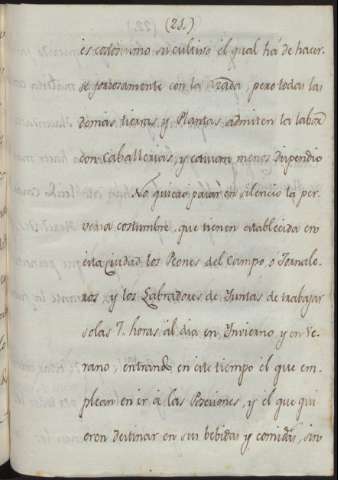 (21.)
es costosimo su cultivo el qual há de hacer-
se forzosamente con la azada, pero todas las
demás tierras, y Plantas admiten la labor
con Caballerias, y causan menos dispendio
No quiero pasar en silencio la per-
versa costumbre, que tienen establecida en
esta Ciudad los Peones del Campo ó Jornale-
ros y los Labradores de Juntas de trabajar
solas 7. horas al dia en Invierno y en Ve-
rano, entrando en este tiempo el que em-
plean en ir á las Posesiones, y el que qui
eren destinar en sus bebidas y comidas, sin